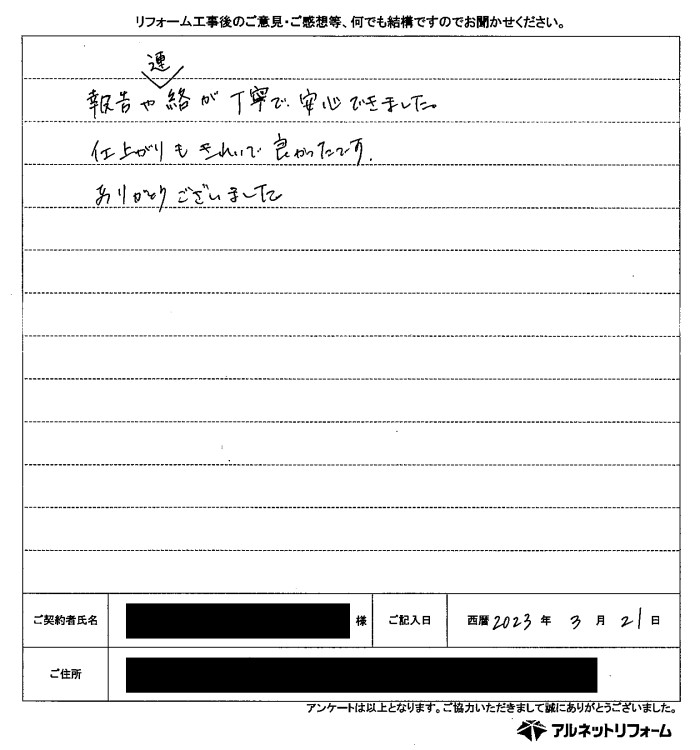 リフォーム工事後のご意見・ご感想等、何でも結構ですのでお聞かせください。
報告や連絡が丁寧で、安心できました。
仕上がりもきれいで良かったです。
ありがとうございました
ご契約者氏名 様 ご記入日 西暦2023年 3月 21日
ご住所
アンケートは以上となります。ご協力いただきまして誠にありがとうございました。
アルネットリフォーム